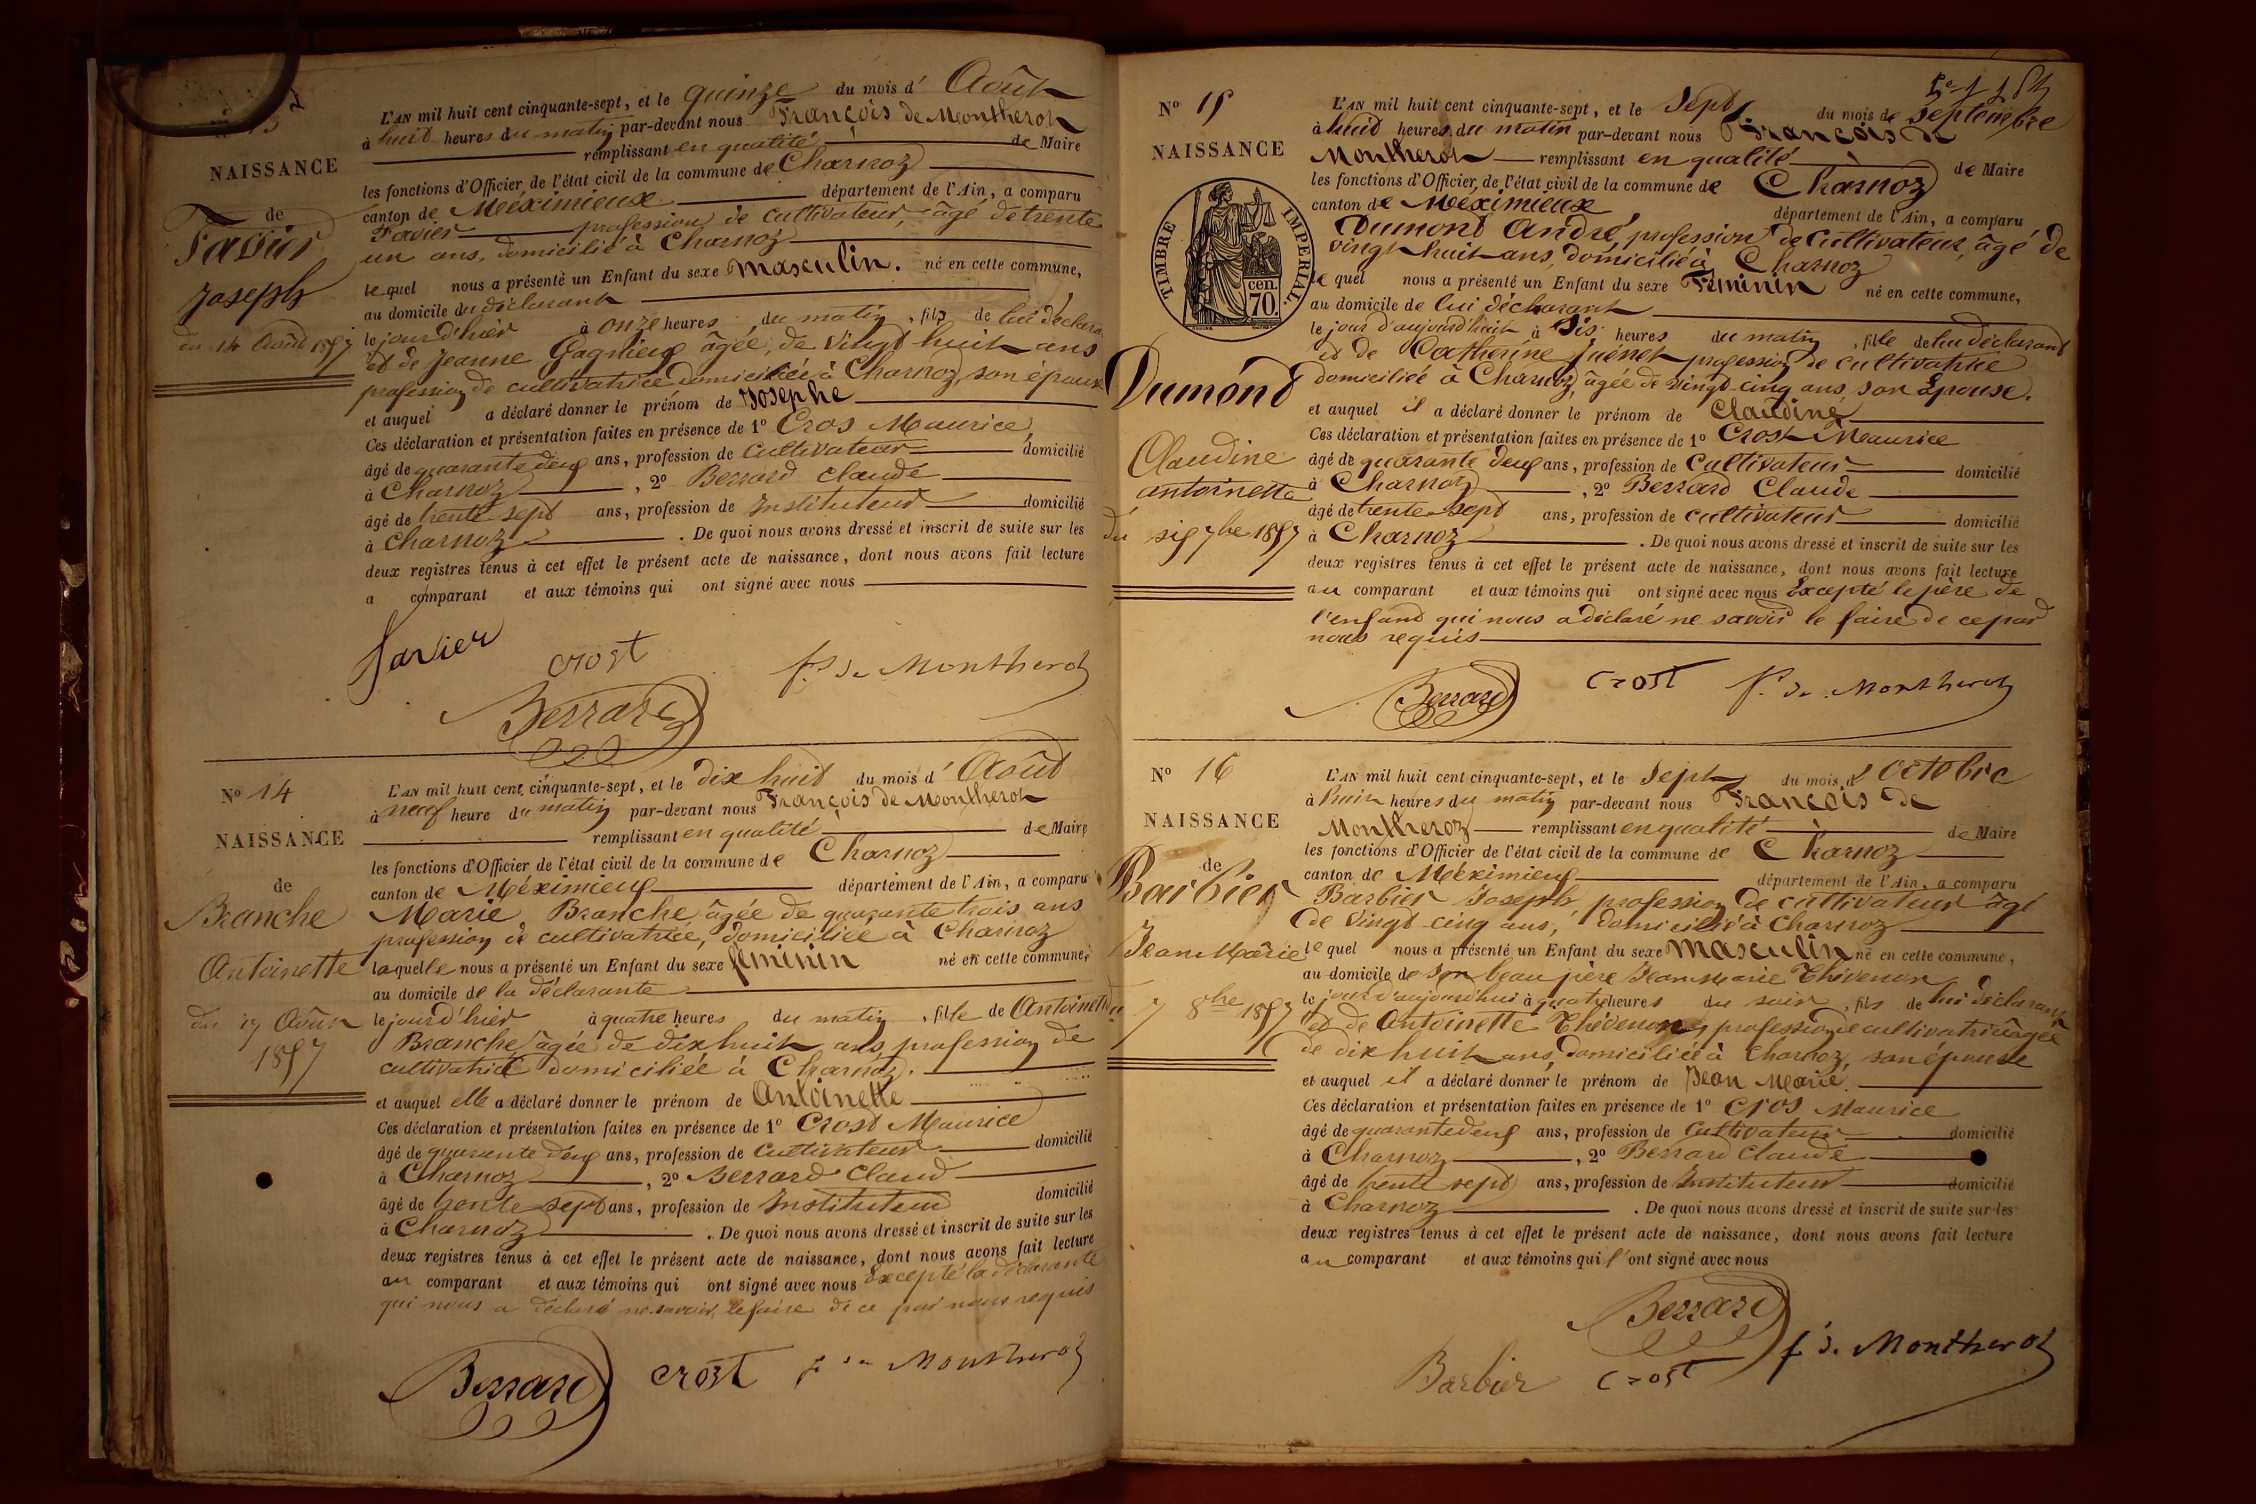 L'AN mil huit cent cinquante-sept, et le quinze du mois d' Août
à huit heures du matin par-devant nous François de Montherot
remplissant en qualité de Maire
les fonctions d'Officier de l'état civil de la commune de Charnoz
canton de Méximieux département de l'Ain, a comparu
Favier profession de cultivateur, âgé de trente
un ans, domicilié à Charnoz
lequel nous a présenté un Enfant du sexe masculin. né en cette commune,
au domicile du déclarant
le jour d'hier à onze heures du matin, fils de lui déclarant
et de Jeanne âgée de vingt huit ans
profession de cultivatrice domiciliée à Charnoz, son épouse
et auquel a déclaré donner le prénom de Josephe
Ces déclaration et présentation faites en présence de 1º Cros Maurice
âgé de quarante deux ans, profession de cultivateur domicilié
à Charnoz, 2º Berrard Claude
âgé de trente sept ans, profession de Instituteur domicilié
à Charnoz. De quoi nous avons dressé et inscrit de suite sur les
deux registres tenus à cet effet le présent acte de naissance, dont nous avons fait lecture
a comparant et aux témoins qui ont signé avec nous
NAISSANCE
de
Favier
Joseph
du 14 Août 1857
favier
crost
f. de Montherot
Berrard
Nº 14
NAISSANCE
de
Branche
Antoinette
du 17 Août
1857
L'AN mil huit cent cinquante-sept, et le dix huit du mois d' Août
à neuf heure du matin par-devant nous François de Montherot
remplissant en qualité de Maire
les fonctions d'Officier de l'état civil de la commune de Charnoz
canton de Méximieux département de l'Ain, a comparu
Marie Branche âgée de quarante trois ans
profession de cultivatrice, domiciliée à Charnoz
laquelle nous a présenté un Enfant du sexe féminin né en cette commune,
au domicile de la déclarante
le jour d'hier à quatre heures du matin, fille de Antoinette
Branche âgée de dix huit ans profession de
cultivatrice domiciliée à Charnoz.
et auquel elle a déclaré donner le prénom de Antoinette
Ces déclaration et présentation faites en présence de 1º Crost Maurice
âgé de quarante deux ans, profession de cultivateur domicilié
à Charnoz, 2º Berrard Claud
âgé de trente sept ans, profession de Instituteur domicilié
à Charnoz. De quoi nous avons dressé et inscrit de suite sur les
deux registres tenus à cet effet le présent acte de naissance, dont nous avons fait lecture
au comparant et aux témoins qui ont signé avec nous Excepté la déclarante
qui nous a déclaré ne savoir le faire de ce par nous requis
Berrard crost f de Montherot
Nº 15
NAISSANCE
TIMBRE IMPERIAL.
cen.
70.
Dumond
Claudine
antoinette
du six 7bre 1857
L'AN mil huit cent cinquante-sept, et le sept du mois de septembre
à huit heures du matin par-devant nous François de
Montherot remplissant en qualité de Maire
les fonctions d'Officier de l'état civil de la commune de Charnoz
canton de Méximieux département de l'Ain, a comparu
Dumond André profession de Cultivateur, âgé de
vingt huit ans, domicilié à Charnoz
le quel nous a présenté un Enfant du sexe Féminin né en cette commune,
au domicile de lui déclarant
le jour d'aujourd'huit à Sis heures du matin, fille de lui déclarant
et de Catherine profession de cultivatrice
domiciliée à Charnoz, âgée de vingt cinq ans, son Epouse.
et auquel il a déclaré donner le prénom de Claudine
Ces déclaration et présentation faites en présence de 1º Crost Maurice
âgé de quarante deux ans, profession de Cultivateur domicilié
à Charnoz, 2º Berrard Claude
âgé de trente sept ans, profession de cultivateur domicilié
à Charnoz. De quoi nous avons dressé et inscrit de suite sur les
deux registres tenus à cet effet le présent acte de naissance, dont nous avons fait lecture
au comparant et aux témoins qui ont signé avec nous Excepté le père de
l'enfand qui nous a déclaré ne savoir le faire de ce par
nous requis
Berrard crost f. de Montherot
Nº 16
NAISSANCE
de
Barbier
Jean Marie
7 8bre 1857
L'AN mil huit cent cinquante-sept, et le sept du mois d' octobre
à huit heures du matin par-devant nous François de
Montheroz remplissant en qualité de Maire
les fonctions d'Officier de l'état civil de la commune de Charnoz
canton de Méximieux département de l'Ain, a comparu
Barbier Joseph profession de cultivateur âgé
de vingt cinq ans, domicilié à Charnoz
le quel nous a présenté un Enfant du sexe masculin né en cette commune,
au domicile de son beau père Jean Marie Thévenon
le jour d'aujourd'hui à quatre heures du soir, fils de lui déclarant
et de Antoinette Thévenon, profession de cultivatrice âgée
de dix huit ans, domiciliée à Charnoz, son épouse
et auquel il a déclaré donner le prénom de Jean Marie.
Ces déclaration et présentation faites en présence de 1º Cros Maurice
âgé de quarante deux ans, profession de Cultivateur domicilié
à Charnoz, 2º Berrard Claude
âgé de trente sept ans, profession de Instituteur domicilié
à Charnoz. De quoi nous avons dressé et inscrit de suite sur les
deux registres tenus à cet effet le présent acte de naissance, dont nous avons fait lecture
au comparant et aux témoins qui l'ont signé avec nous
Berrard
Barbier crost f. de Montherot